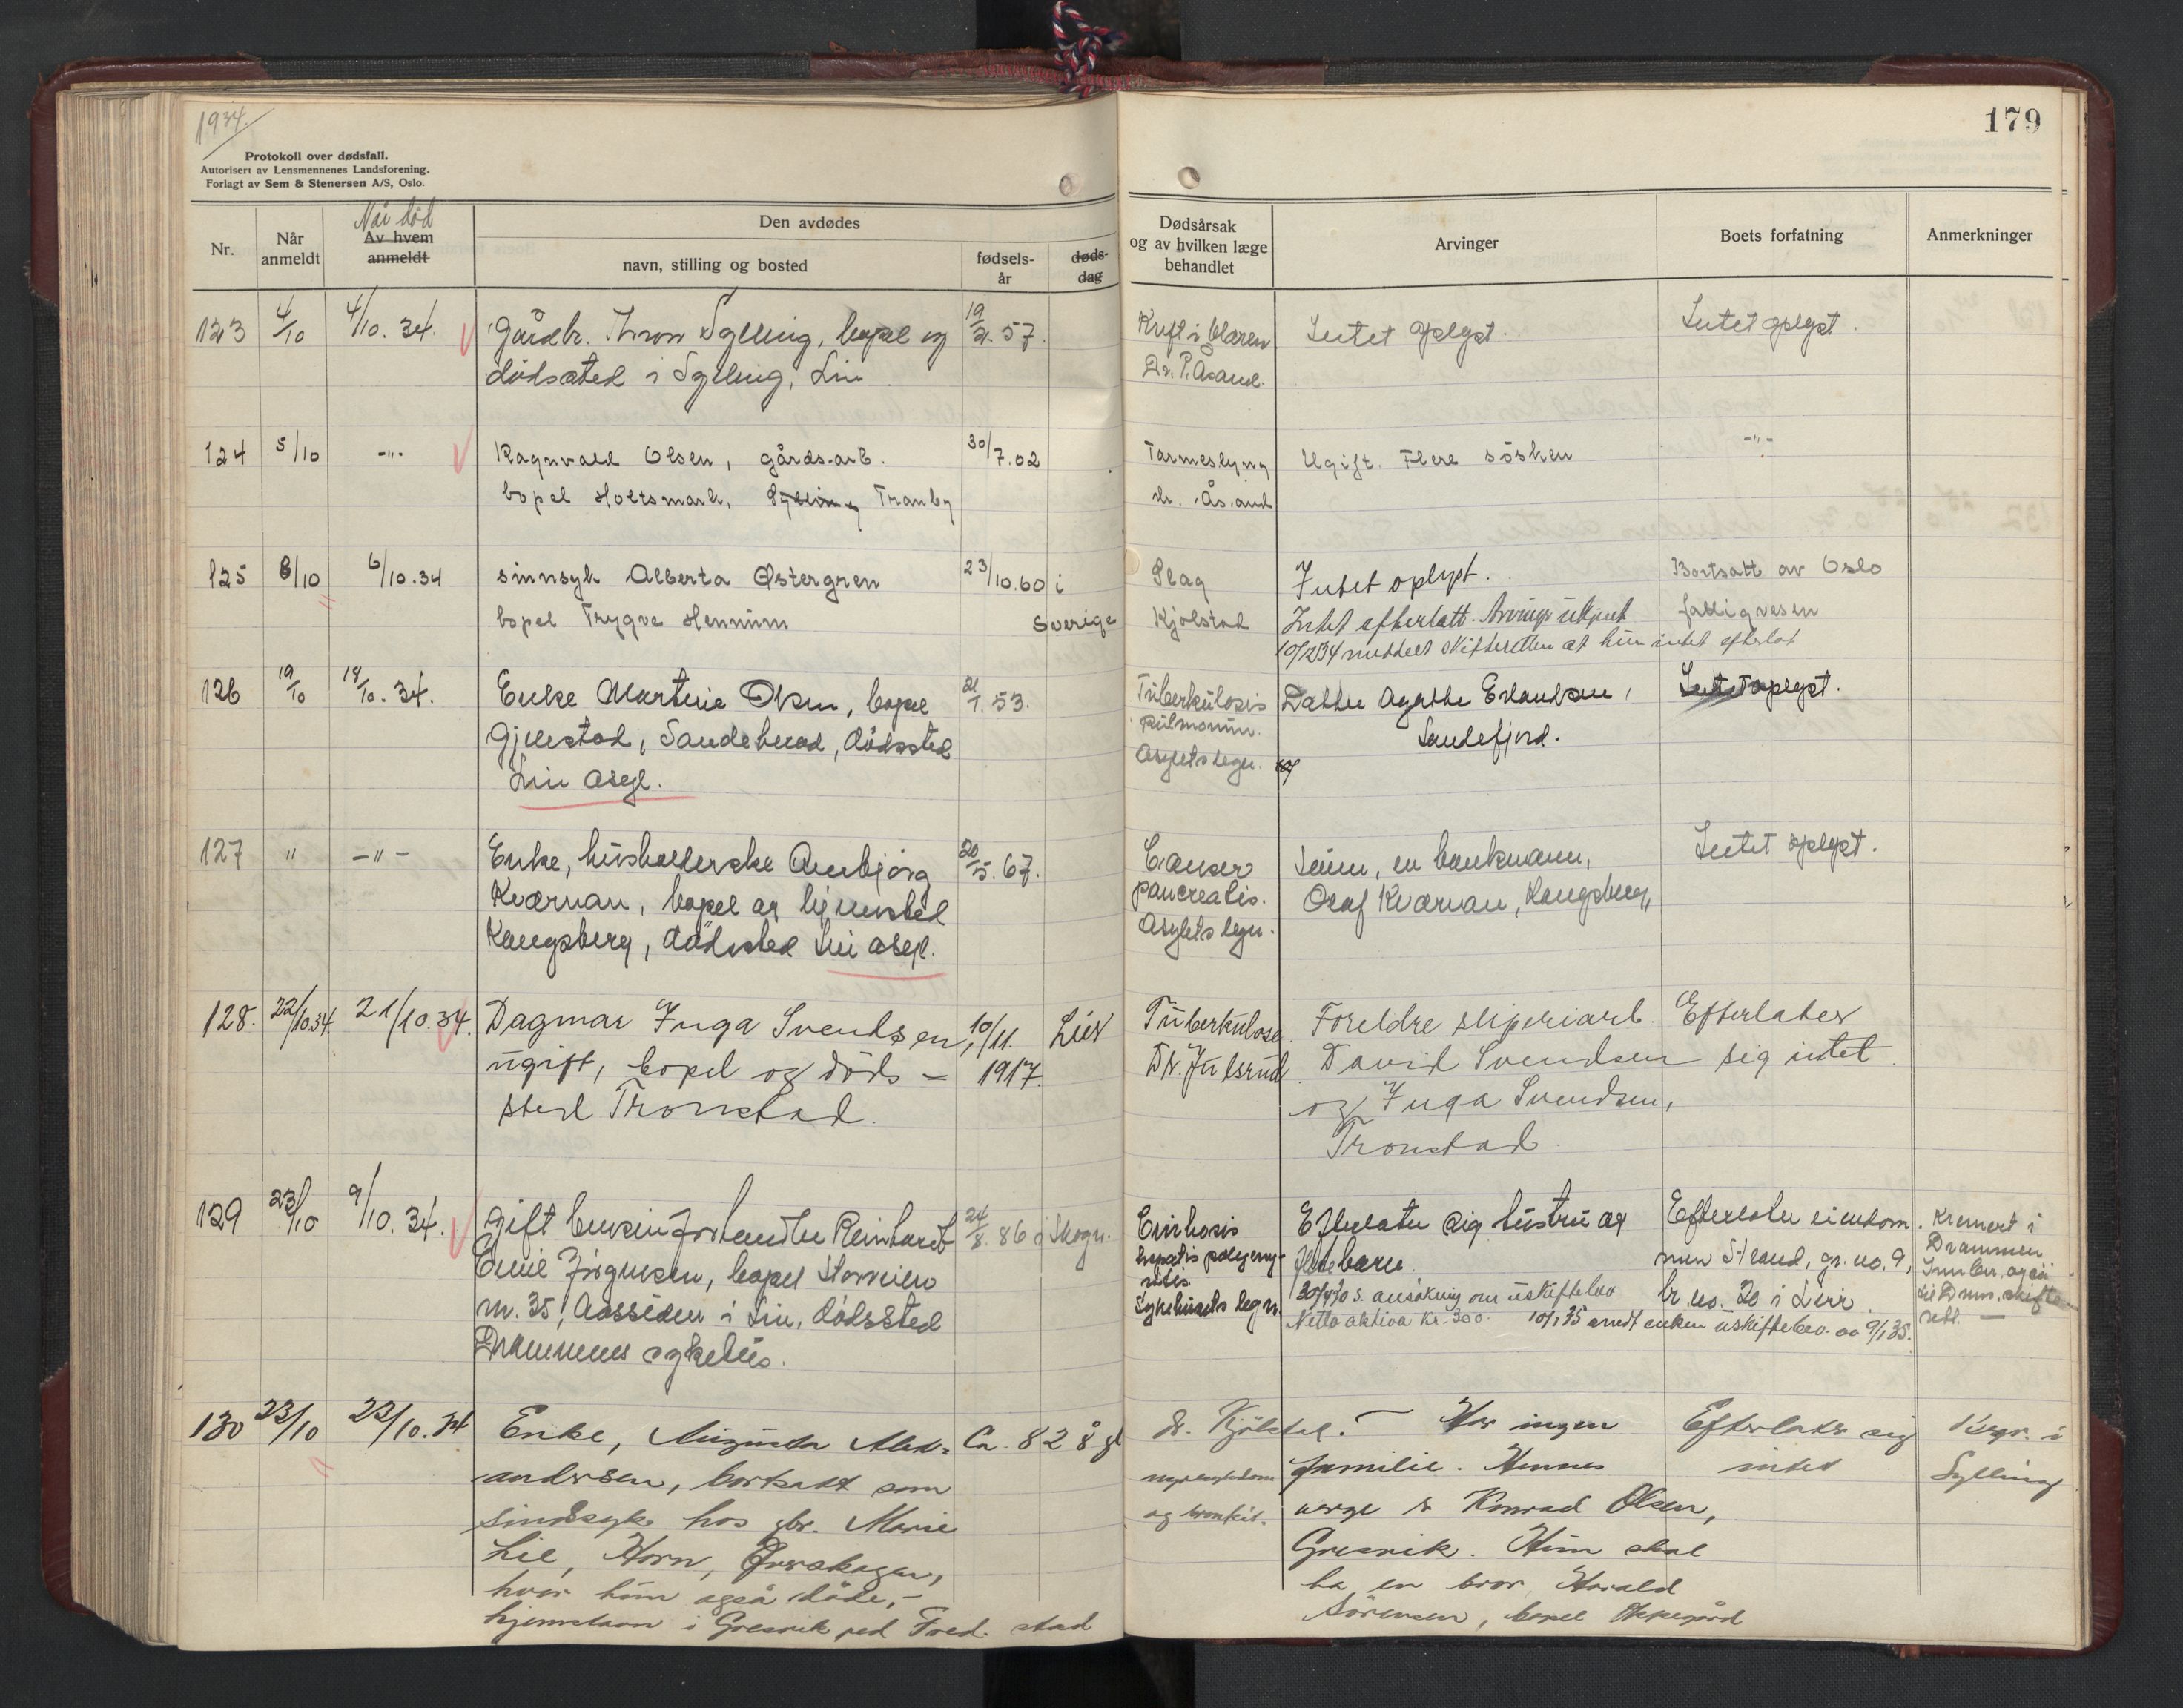 1934.
179
Protokoll over dødsfall.
Autorisert av Lensmennenes Landsforening.
Forlagt av Sem & Stenersen A/S, Oslo.
Nr.
Når anmeldt
Når død
Av hvem anmeldt
Den avdødes
navn, stilling og bosted
fødsels-år
døds-dag
Dødsårsak
og av hvilken læge
behandlet
Arvinger
Boets forfatning
Anmerkninger
123 4/10 4/10. 34. Gårdbr. Thron Sylling, bopel og 19/2. 57.
dødssted i Sylling, Lier
Kreft i Dr. P. Åsand.
Intet oplyst.
Intet oplyst.
124 5/10 -"- Ragnvald Olsen, gårds.arb. 30/7.02
bopel Holtsmark, Sylling Tranby
Tarmeslyng
dr. Åsand
Ugift. Flere søsken
-"-
125 8/10 6/10.34 sinnsyk Alberta Østergren 23/10.60 i
bopel Trygve Hennum Sverige
Slag
Kjølstad
Intet oplyst.
Intet efterlatt. Arvinger ukjent
10/1234 meddelt Skifteretten at hun intet efterlot
Bortsatt av Oslo
fattigvesen
126 19/10 18/10. 34. Enke Martine Olsen, bopel 21/1. 53.
Gjerstad, Sandeherad, dødssted
Lier asyl.
Tuberkulosis
pulmonum.
Asylets legn.
Datter Agathe Erlandsen,
Sandefjord.
Intet oplyst.
127 " -"- Enke, husholderske Annbjørg 20/5. 67.
Kværnan, bopel og hjemsted
Kongsberg, dødssted Lier asyl.
Cancer
pancreatis.
Asylets legn.
Sønn, en bankmann,
Olaf Kværnan, Kongsberg,
Intet oplyst.
128. 22/10.34. 21/10.34. Dagmar Inga Svendsen, 10/11. Lier
ugift, bopel og døds- 1917.
sted Tronstad.
Tuberkulose.
Dr. Julsrud
Foreldre sliperiarb.
David Svendsen
og Inga Svendsen,
Tronstad.
Efterlater
sig intet.
129 23/10 9/10. 34. Gift bensinforhandler Reinhardt 24/8. 86 i Skogn.
Emil Jørgensen, bopel
nr. 35, Aassiden i Lier, dødssted
Drammens sykehus.
Cirrhosis
hepatis
Sykehusets legn.
Efterlater sig hustru og
flere barn.
s. ansøkning om uskiftebo
Netto aktiva Kr. 300. 10/1 35 enken uskiftebev. av 9/1 35.
Efterlater eiendommen
Strand, gr. no. 9,
br. no. 20 i Lier.
Kremert i
Drammen
130 23/10 22/10.34 Enke, Augusta Alek- Ca. 82 år gl
andersen, bortsatt som
sindssyk hos gbr. Marie
Lie, Horn,
hvor hun også døde,-
hjemstavn i Gresvik ved Fred. stad
dr. Kjølstad.
nyresykdom
og bronkit.
Har ingen
familie. Hennes
verge er Konrad Olsen,
Gresvik. Hun skal
ha en bror Harald
Sørensen, bopel Oppegård
Efterlater sig
intet
Begr. i
Sylling